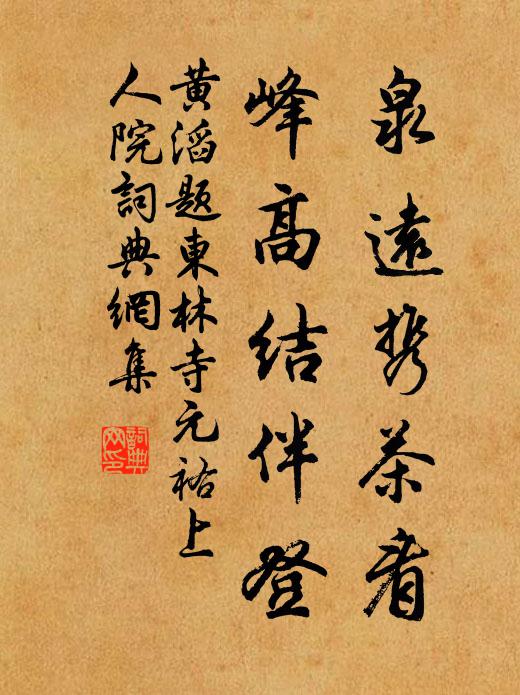 泉遠携茶看
峰高結伴登
黃滔題東林寺元祐上
人院詞典網集
詞典網印